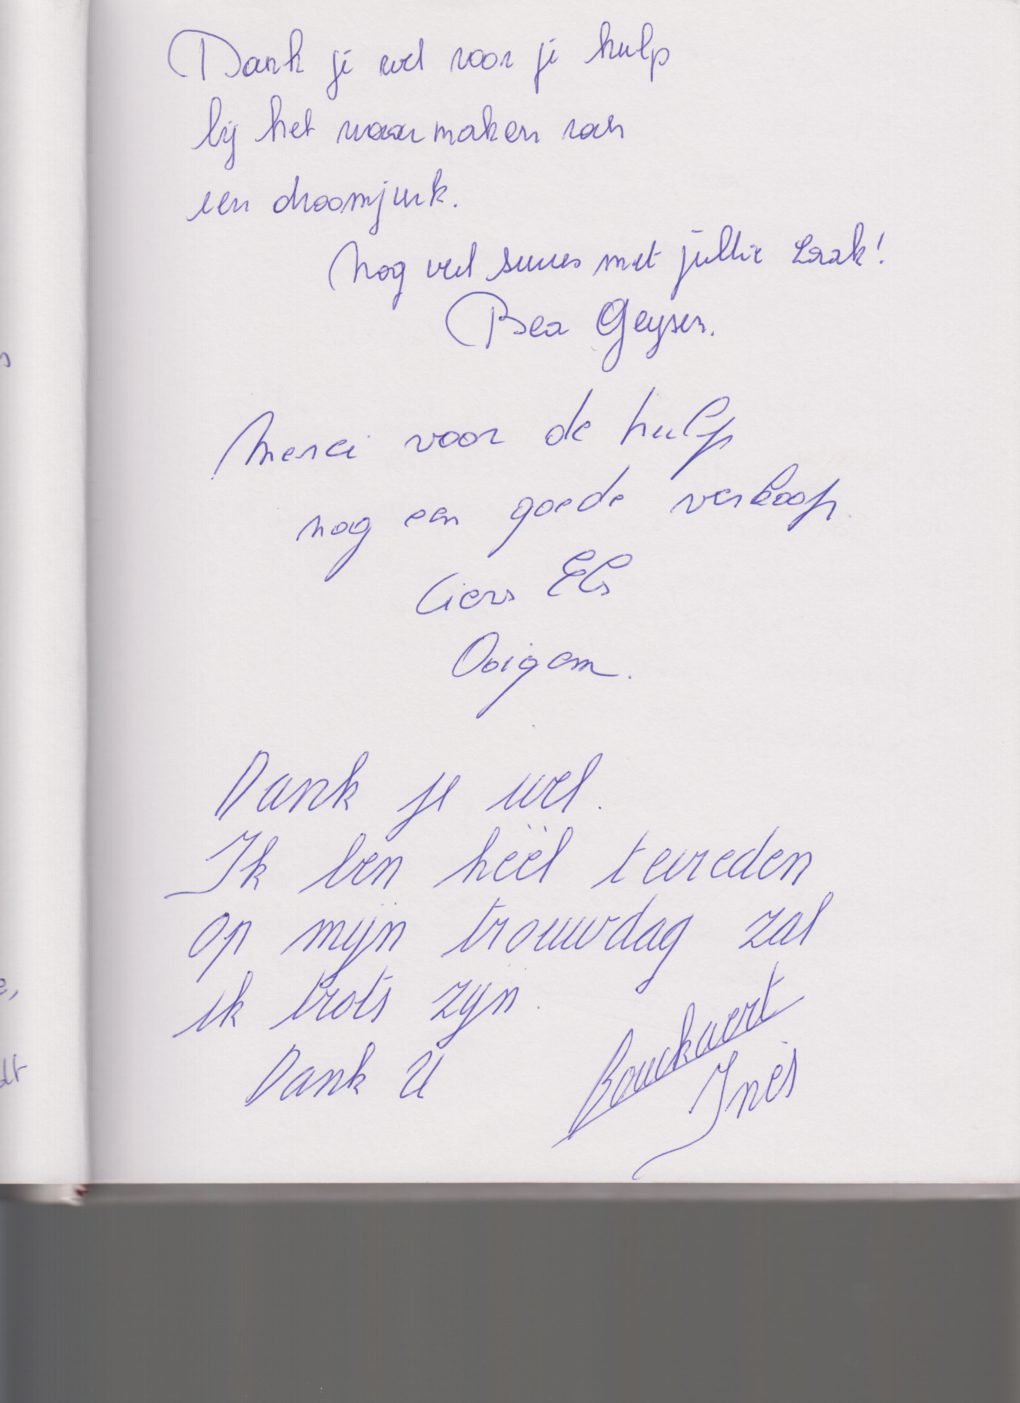 Dank je wel voor je hulp
bij het waarmaken van
een droomjurk.
Nog veel succes met jullie zaak!
Bea Geysen.
Merci voor de hulp
nog een goede verkoop.
Ciers Els
Ooigem.
Dank je wel.
Ik ben héél tevreden
op mijn trouwdag zal
ik trots zijn.
Dank U
Bouckaert
Inès